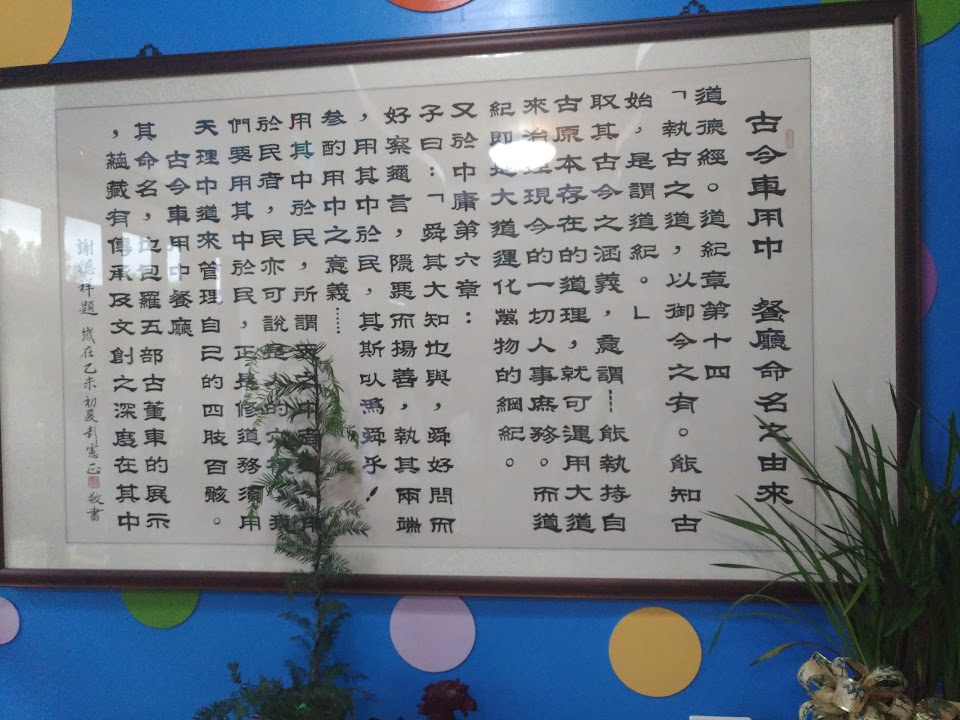 古今車用中 餐廳命名之由來
道德經。道紀章第十四
「執古之道，以御今之有。能知古
始，是謂道紀。」
取其古今之涵義，意謂┅能執持自
古原本存在的道理，就可運用大道
來治理現今的一切人事庶務。而道
紀即是大道運化萬物的綱紀。
又於中庸第六章：
子曰：「舜其大知也與，舜好問而
好察邇言，隱惡而揚善，執其兩端
，用其中於民，其斯以為舜乎！
參酌用中之意義……
用其中於民，所謂用
於民者，民亦可說是的我
們要用其中於民，正是修道務須用
天理中道來管理自己的四肢百骸。
古今車用中餐廳
其命名，也包羅五部古董車的展示
，蘊藏有傳承及文創之深意在其中
謝聰祥題 歲在乙未初夏 憲正敬書